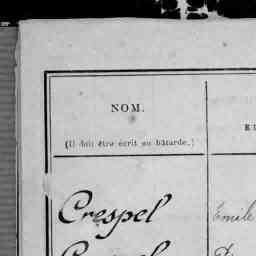 NOM.
(Il doit être écrit en bâtarde.)
Crespel Emile